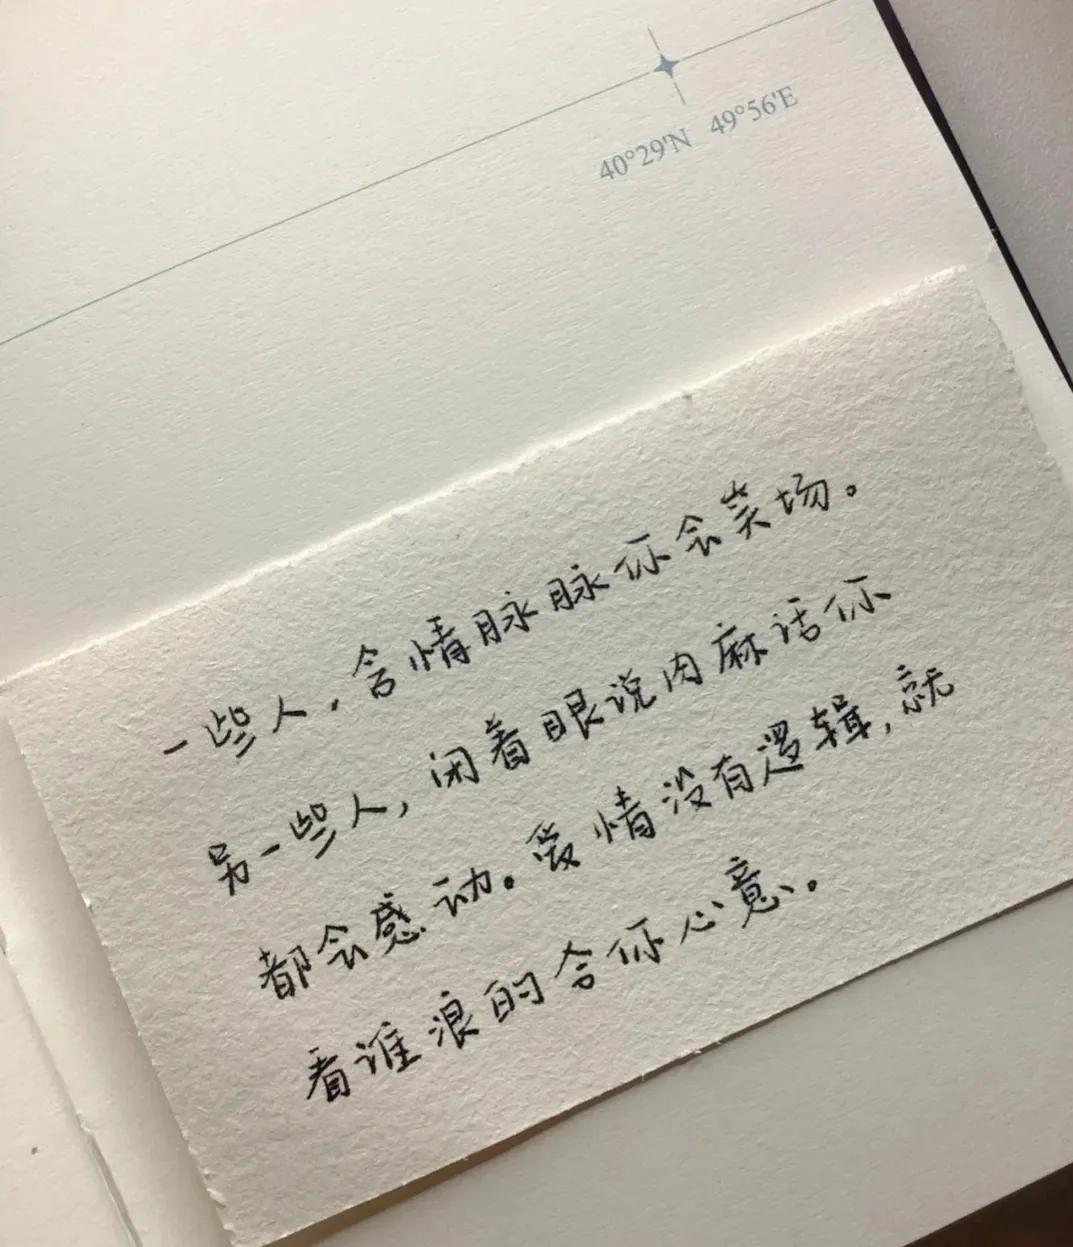 40°29'N 49°56'E
一些人，含情脉脉你会笑场。
另一些人，闭着眼说肉麻话你
都会感动。爱情没有逻辑，就
看谁浪的合你心意。